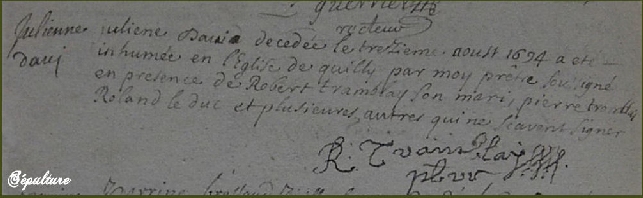 guerrier
recteur
Julienne
Davi
iuliene Davi decedée le trezieme aoust 1694 a été
inhumée en l'Eglise de quilly par moy prêtre soussigné
en presence de Robert tramblay son mari, pierre
Roland le duc et plusieures autres qui ne scavent signer
R.
ptre
Sépulture